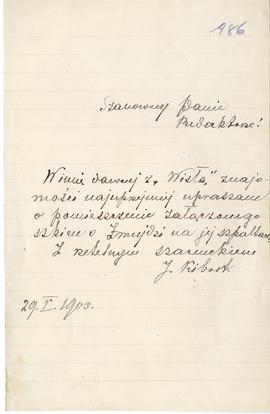 986
Szanowny Panie
Redaktorze!
W imię dawnej z „Wisłą” znajo-
mości najuprzejmiej upraszam
o pomieszczenie załączonego
szkicu o Żmujdzi na jej szpaltach
Z rzetelnym szacunkiem
J. Kibort
29.V. 1903.